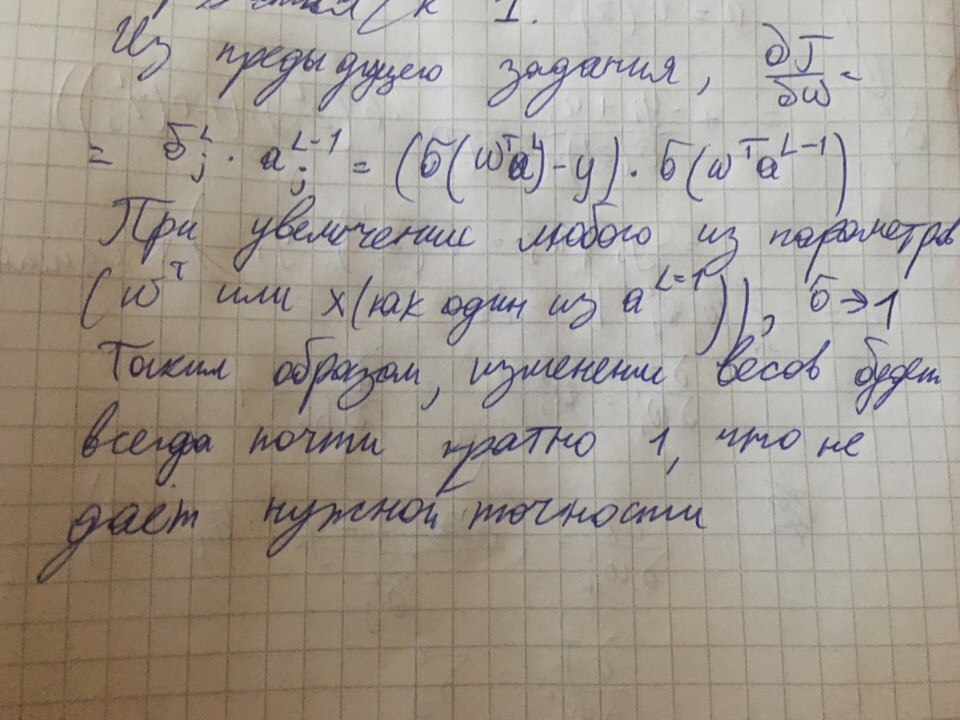 к 1.
Из предыдущего задания, ∂J/∂w =
= δ^L_j · a^{L-1}_j = (б(w^T a^L) - y) · б(w^T a^{L-1})
При увеличении любого из параметров
(w^T или x (как один из a^{L=1})), б → 1
Таким образом, изменение весов будет
всегда почти кратно 1, что не
даёт нужной точности